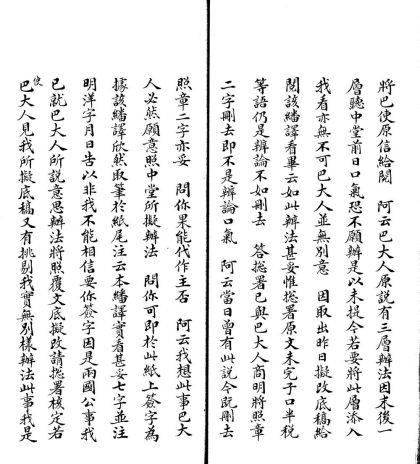 將巴使原信給閱　阿云巴大人原說有三層辦法因末後一
層聽中堂前日口氣恐不願辦是以未提今若要將此層添入
我看亦無不可巴大人並無別意　因取出昨日擬改底稿給
閱該繙譯看畢云如此辦法甚妥惟總署原文未完子口半稅
等語仍是辯論不如刪去　答總署已與巴大人商明將照章
二字刪去即不是辯論口氣　阿云當日曾有此說今既刪去
照章二字亦妥　問你果能代作主否　阿云我想此事巴大
人必然願意照中堂所擬辦法　問你可即於此紙上簽字為
據該繙譯欣然取筆於紙尾注云本繙譯實看甚妥七字並注
明洋字月日告以非我不能相信要你簽字因是兩國公事我
已就巴大人所說意思辦法將照覆文底擬改請總署核定若
巴大人見我所擬底稿又有挑剔我實無別樣辦法此事我是
使